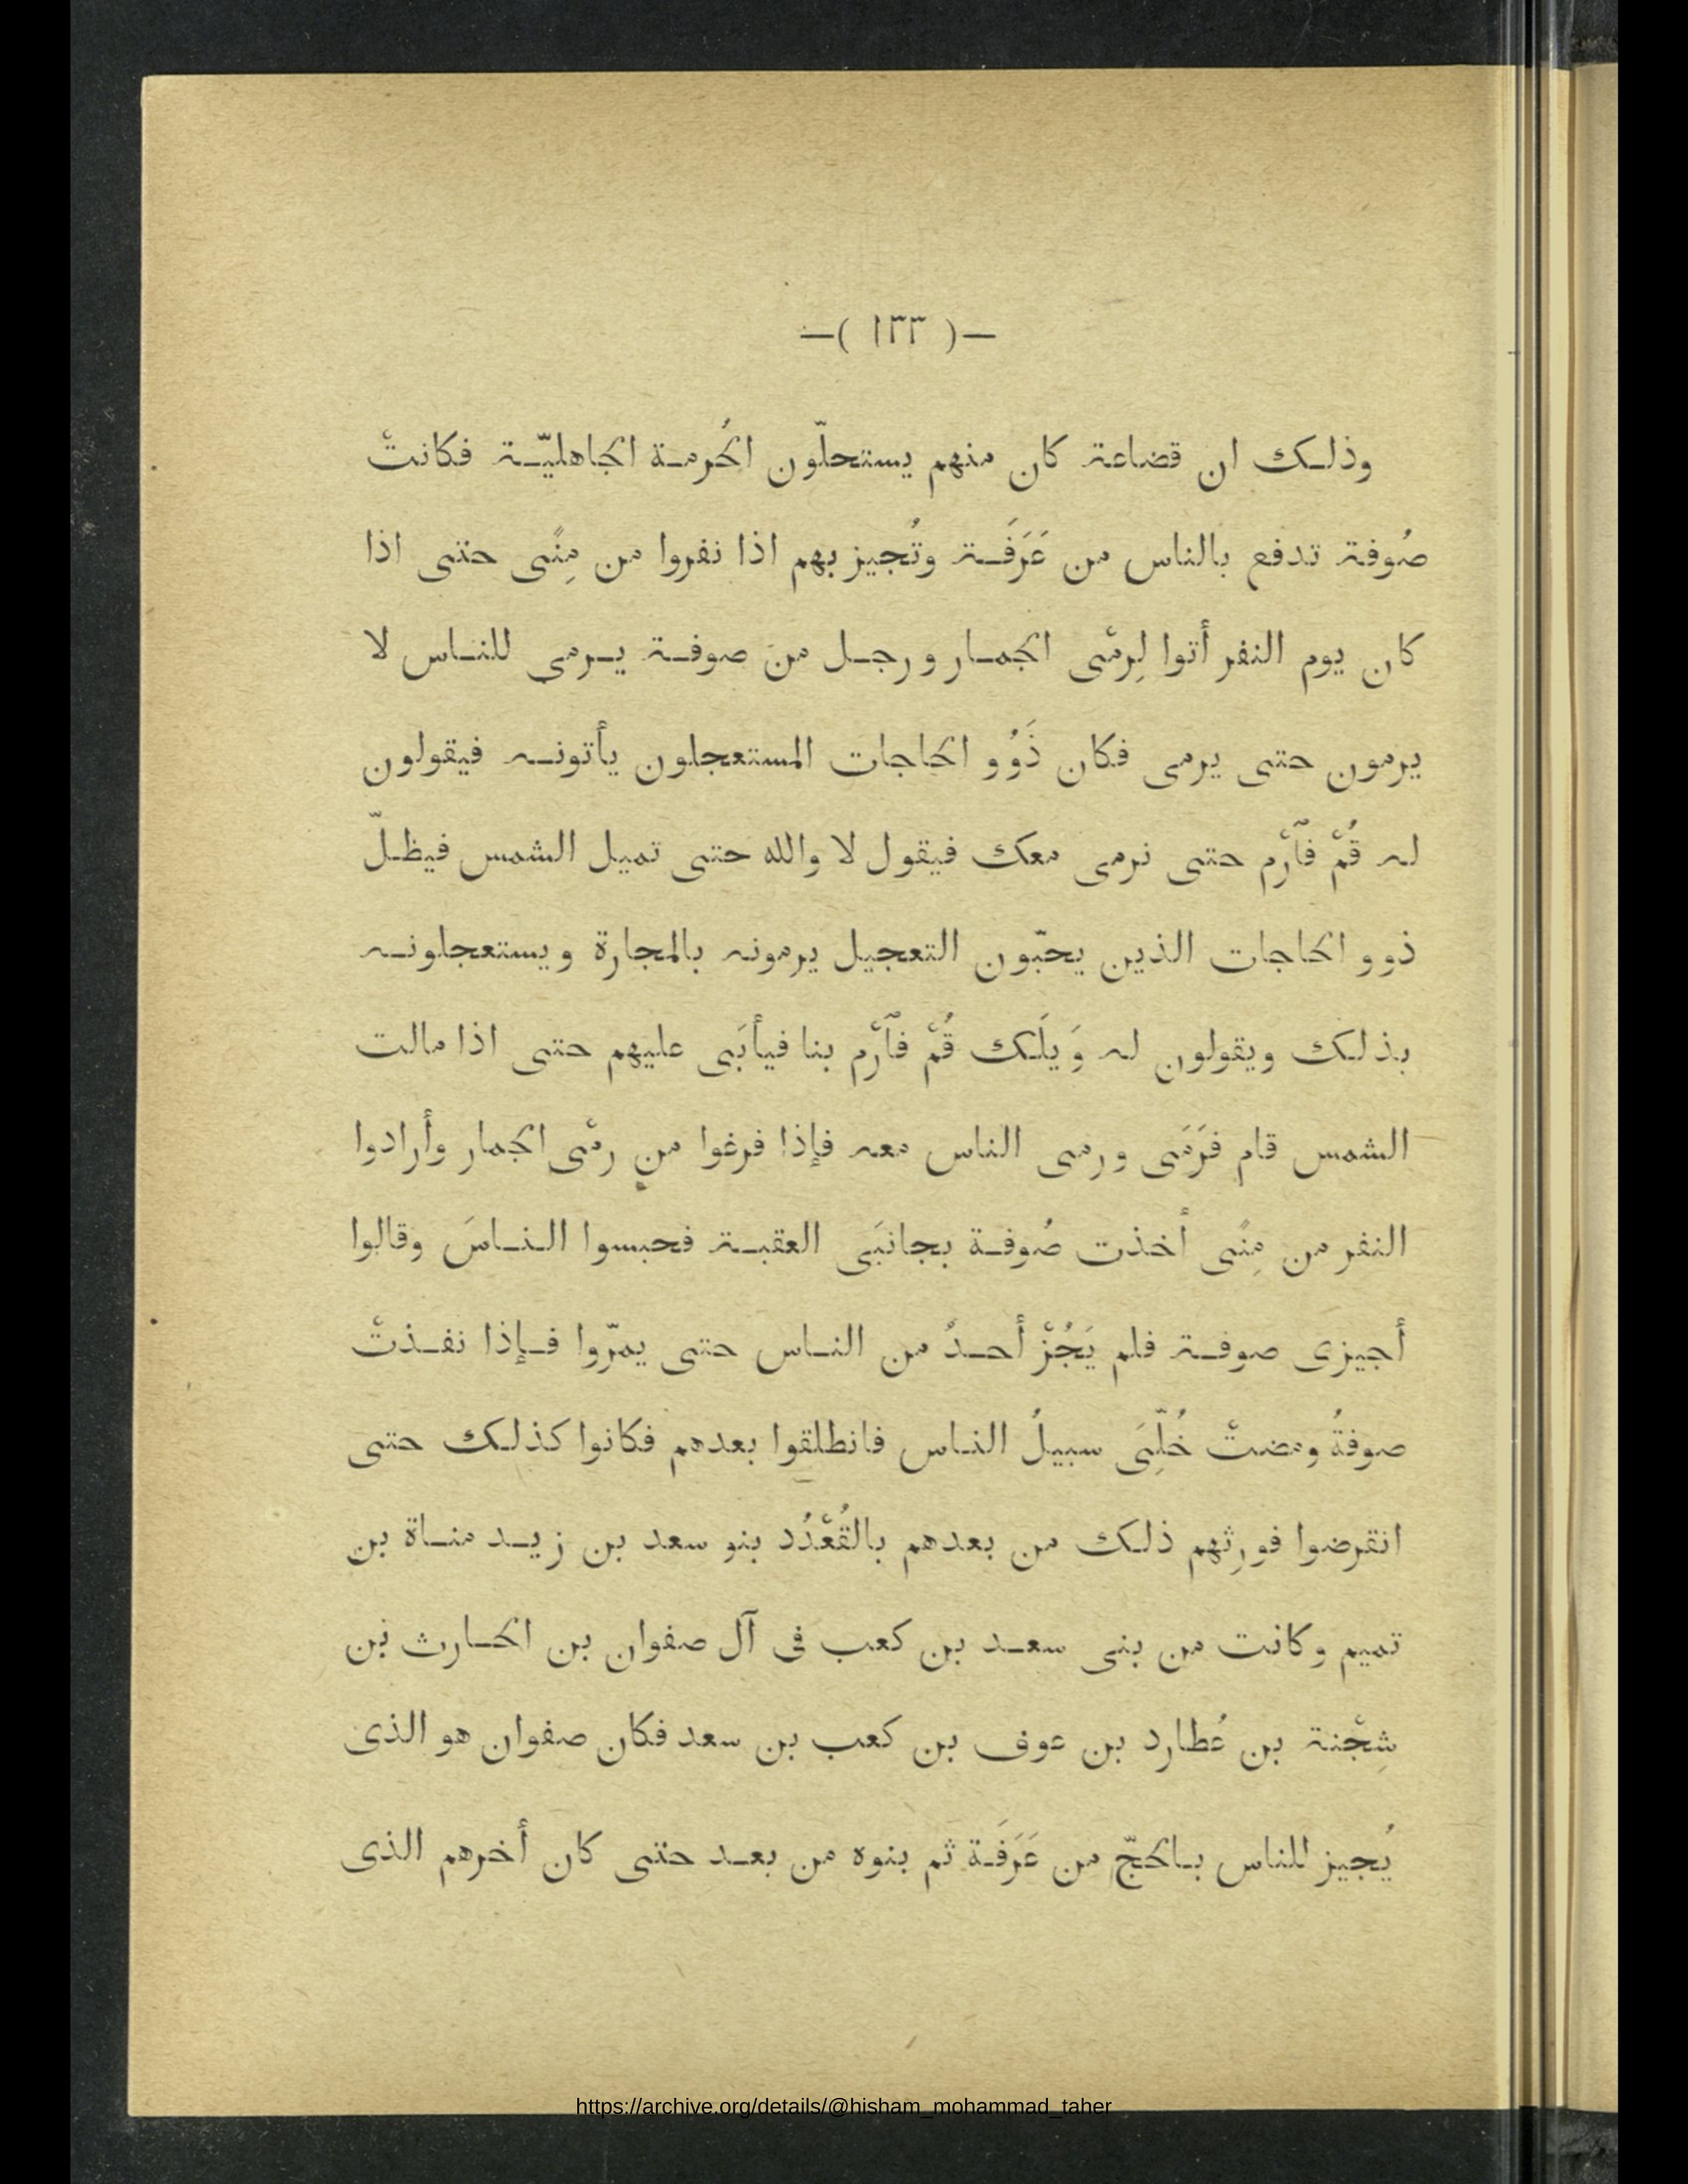 —( ١٣٣ )—
وذلك ان قضاعة كان منهم يستحلّون الحُرمة الجاهليّة فكانتْ
صُوفة تدفع بالناس من عَرَفَة وتُجيز بهم اذا نفروا من مِنًى حتى اذا
كان يوم النفر أتوا لِرمْى الجمار ورجل من صوفة يرمى للناس لا
يرمون حتى يرمى فكان ذَوُو الحاجات المستعجلون يأتونه فيقولون
له قُمْ فٱرْم حتى نرمى معك فيقول لا والله حتى تميل الشمس فيظلّ
ذوو الحاجات الذين يحبّون التعجيل يرمونه بالمجارة ويستعجلونه
بذلك ويقولون له وَيلَك قُمْ فٱرْم بنا فيأبَى عليهم حتى اذا مالت
الشمس قام فرَمَى ورمى الناس معه فإذا فرغوا من رمْى الجمار وأرادوا
النفر من مِنًى أخذت صُوفة بجانبَى العقبة فحبسوا الناسَ وقالوا
أجيزى صوفة فلم يَجُزْ أحدٌ من الناس حتى يمرّوا فإذا نفذتْ
صوفةُ ومضتْ خُلِّىَ سبيلُ الناس فانطلقوا بعدهم فكانوا كذلك حتى
انقرضوا فورِثهم ذلك من بعدهم بالقُعْدُد بنو سعد بن زيد مناة بن
تميم وكانت من بنى سعد بن كعب فى آل صفوان بن الحارث بن
شِجْنة بن عُطارد بن عوف بن كعب بن سعد فكان صفوان هو الذى
يُجيز للناس بالحجّ من عَرَفَة ثم بنوه من بعد حتى كان أخرهم الذى
https://archive.org/details/@hisham_mohammad_taher